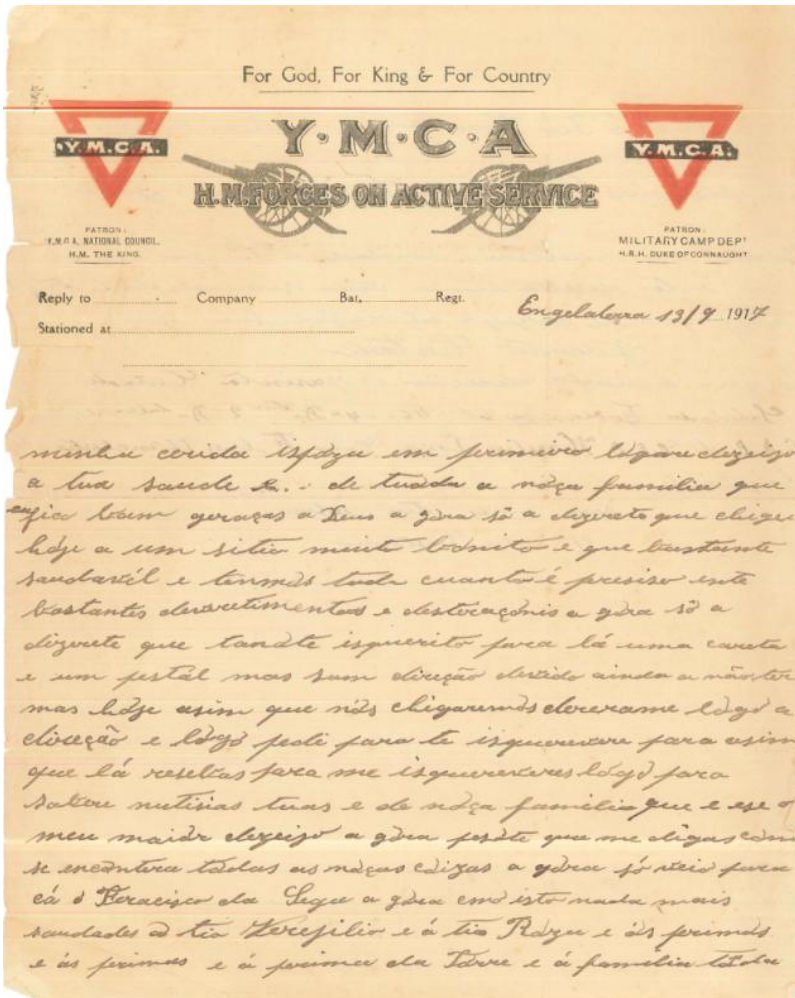 For God, For King & For Country
Y.M.C.A.
Y·M·C·A
Y.M.C.A.
H.M. FORCES ON ACTIVE SERVICE
PATRON:
Y.M.C.A. NATIONAL COUNCIL.
H.M. THE KING.
PATRON:
MILITARY CAMP DEPT
H.R.H. DUKE OF CONNAUGHT
Reply to Company Bat. Regt.
Engelaterra 13/9 1917
Stationed at
minha corida ispoza em primeiro lógare dezeijo
a tua saude e de tuada a nóça familia que
eu fico bam geraças a Deus a góra só a dizerete que chigue
hóje a um sitio muito bónito e que bastante
saudavél e temos tudo cuanto é presiso
bastantes devretimentos e a góra só a
dizerete que isquerito para lá uma careta
e um pustál mas sum direção devido ainda a não ter
mas hóje asim que nós chigaremos derame lógo a
direção e lógo pedi para te isquerevere para asim
que lá resebas para me isquereveres lógo para
sabere nutisias tuas e de nóça familia que e ese o
meu maiór dezeijo a góra pesote que me digas com
se encontera tódas as nóças coizas a góra só veio para
cá o da a góra com isto nada mais
saudades ó tio e á tia e ós primos
e ás primas e á prima da Torre e á familia tóda